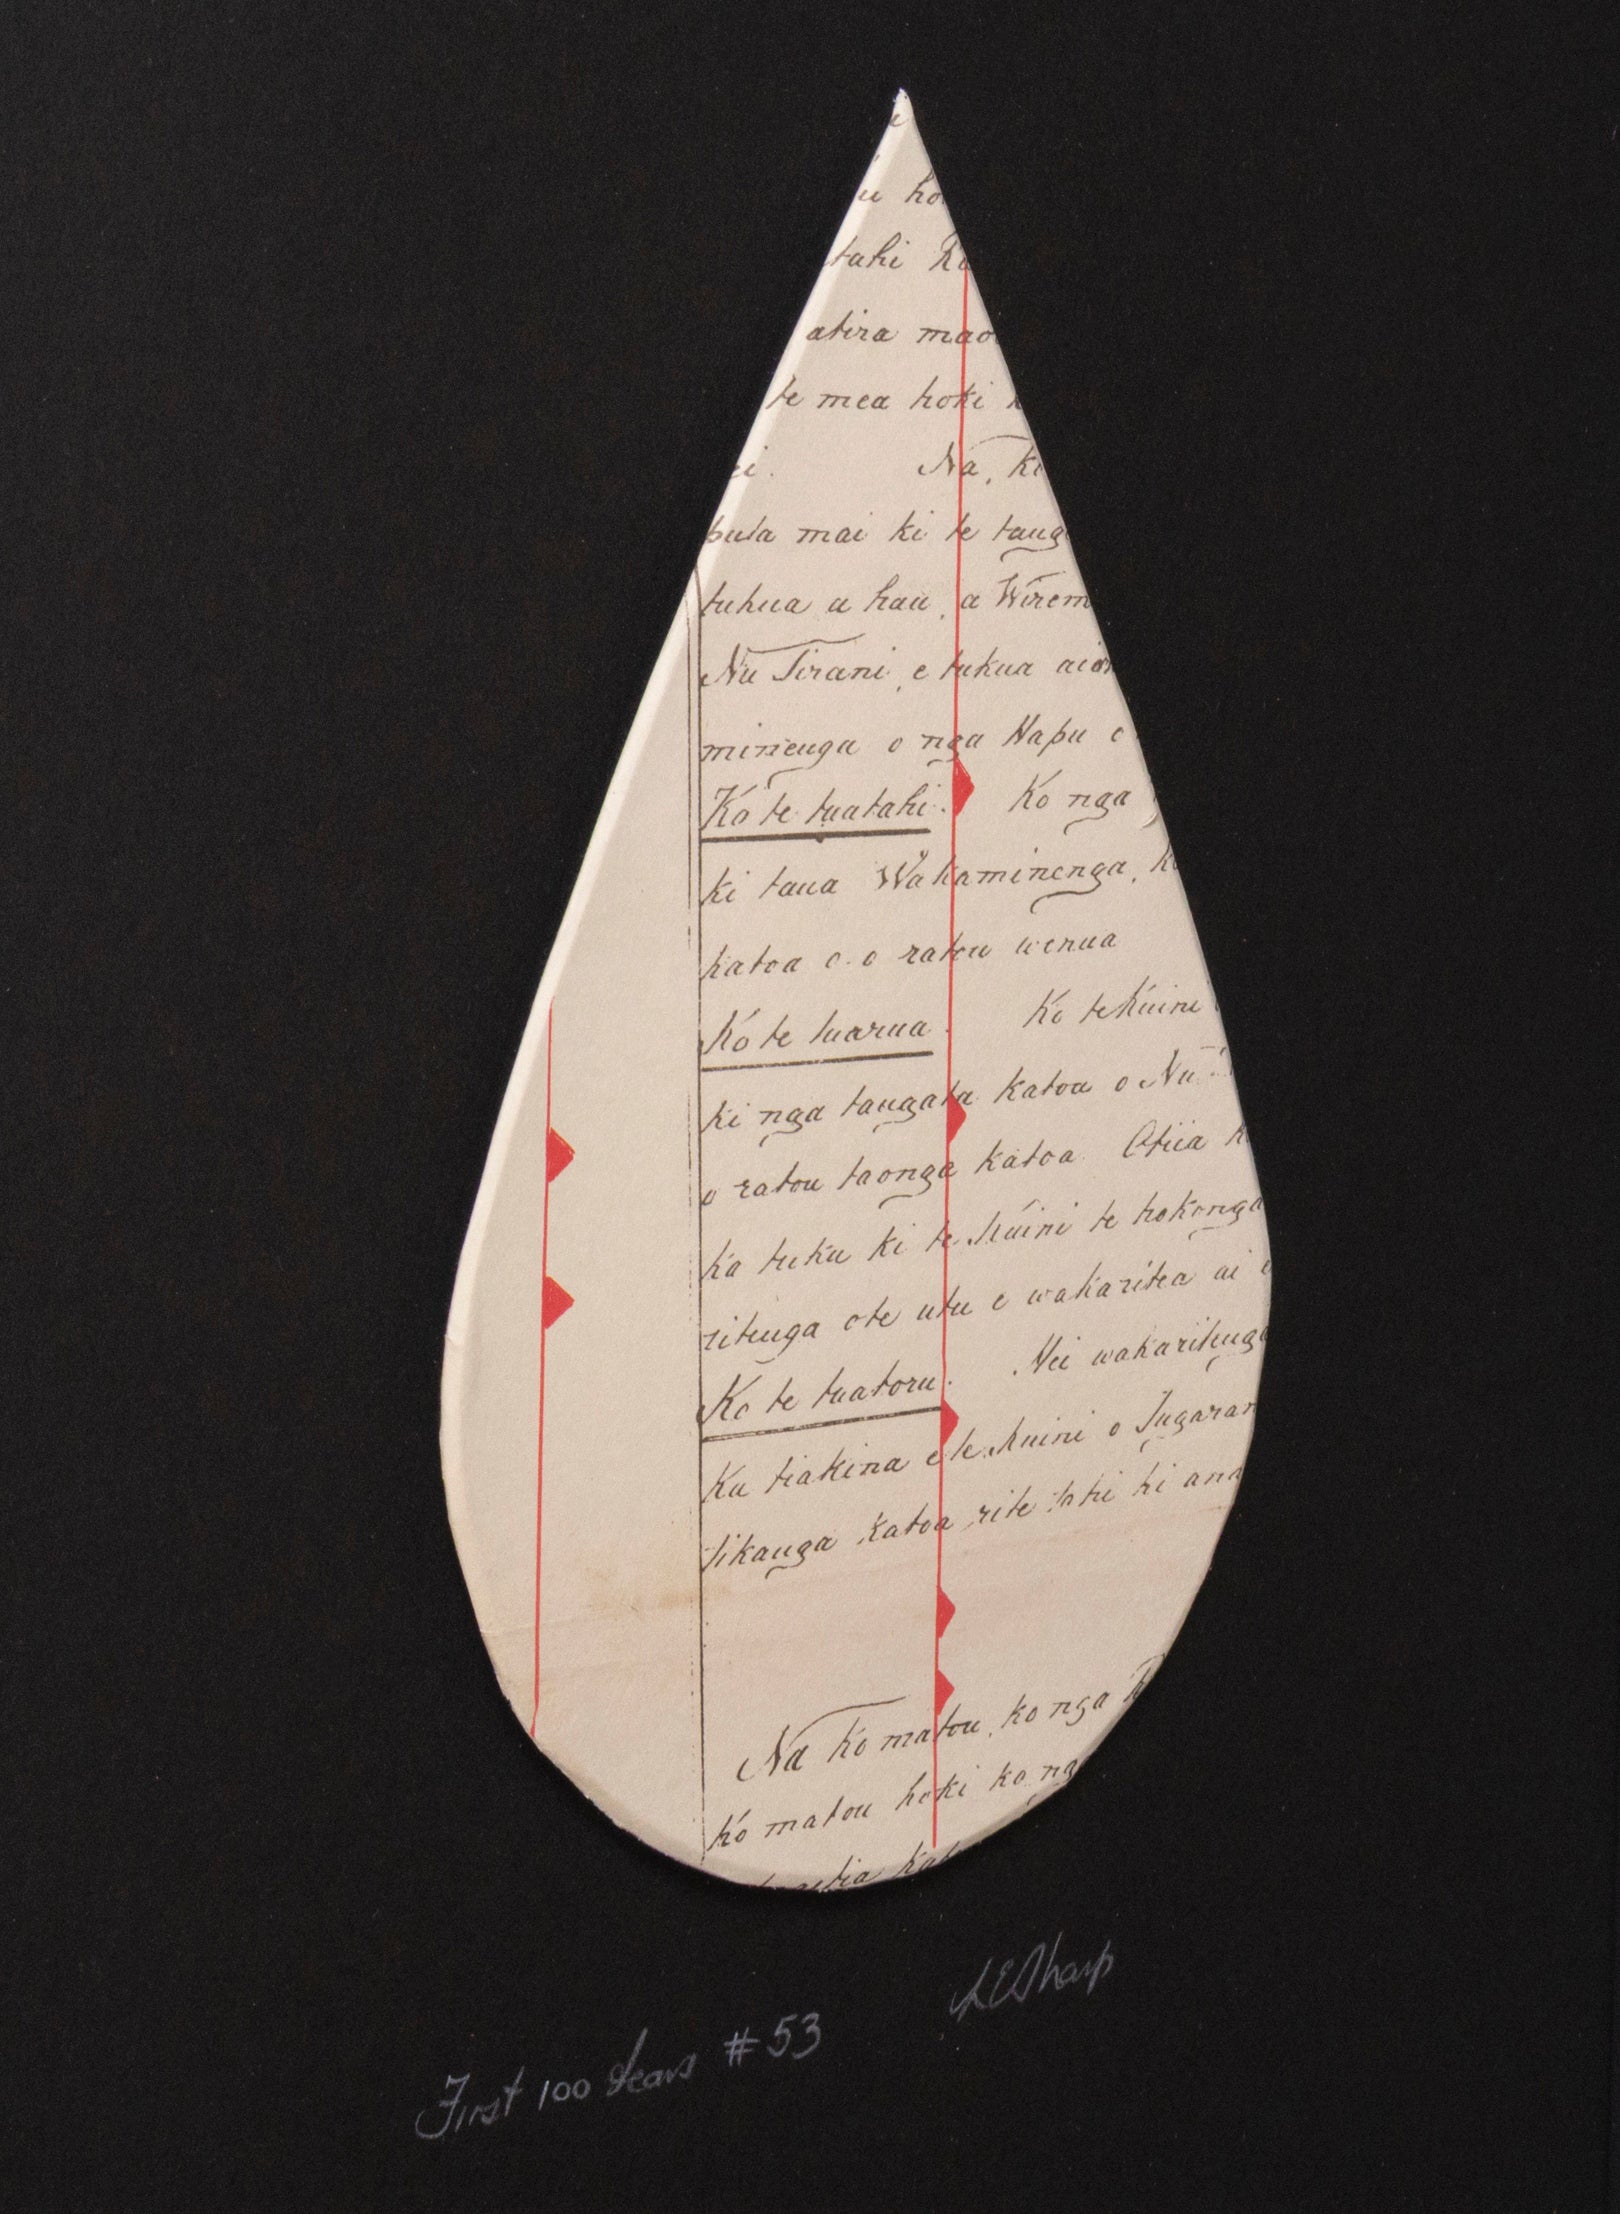 u ho
tahi Ki
atira mao
te mea hoki
ei. Na, ki
puta mai ki te tang
tukua a hau, a Wirem
Nu Tirani, e tukua aian
minenga o nga Hapu o
Ko te tuatahi. Ko nga
ki taua Wakaminenga, k
katoa o o ratou wenua
Ko te tuarua. Ko te Kuini
ki nga tangata katoa o Nu
o ratou taonga katoa. Otiia k
ka tuku ki te Kuini te hokonga
ritenga o te utu e wakaritea ai e
Ko te tuatoru. Hei wakaritenga
Ka tiakina e te Kuini o Ingaran
tikanga katoa rite tahi ki ana
Na ko matou, ko nga R
Ko matou hoki ko ng
LESharp
First 100 tears #53